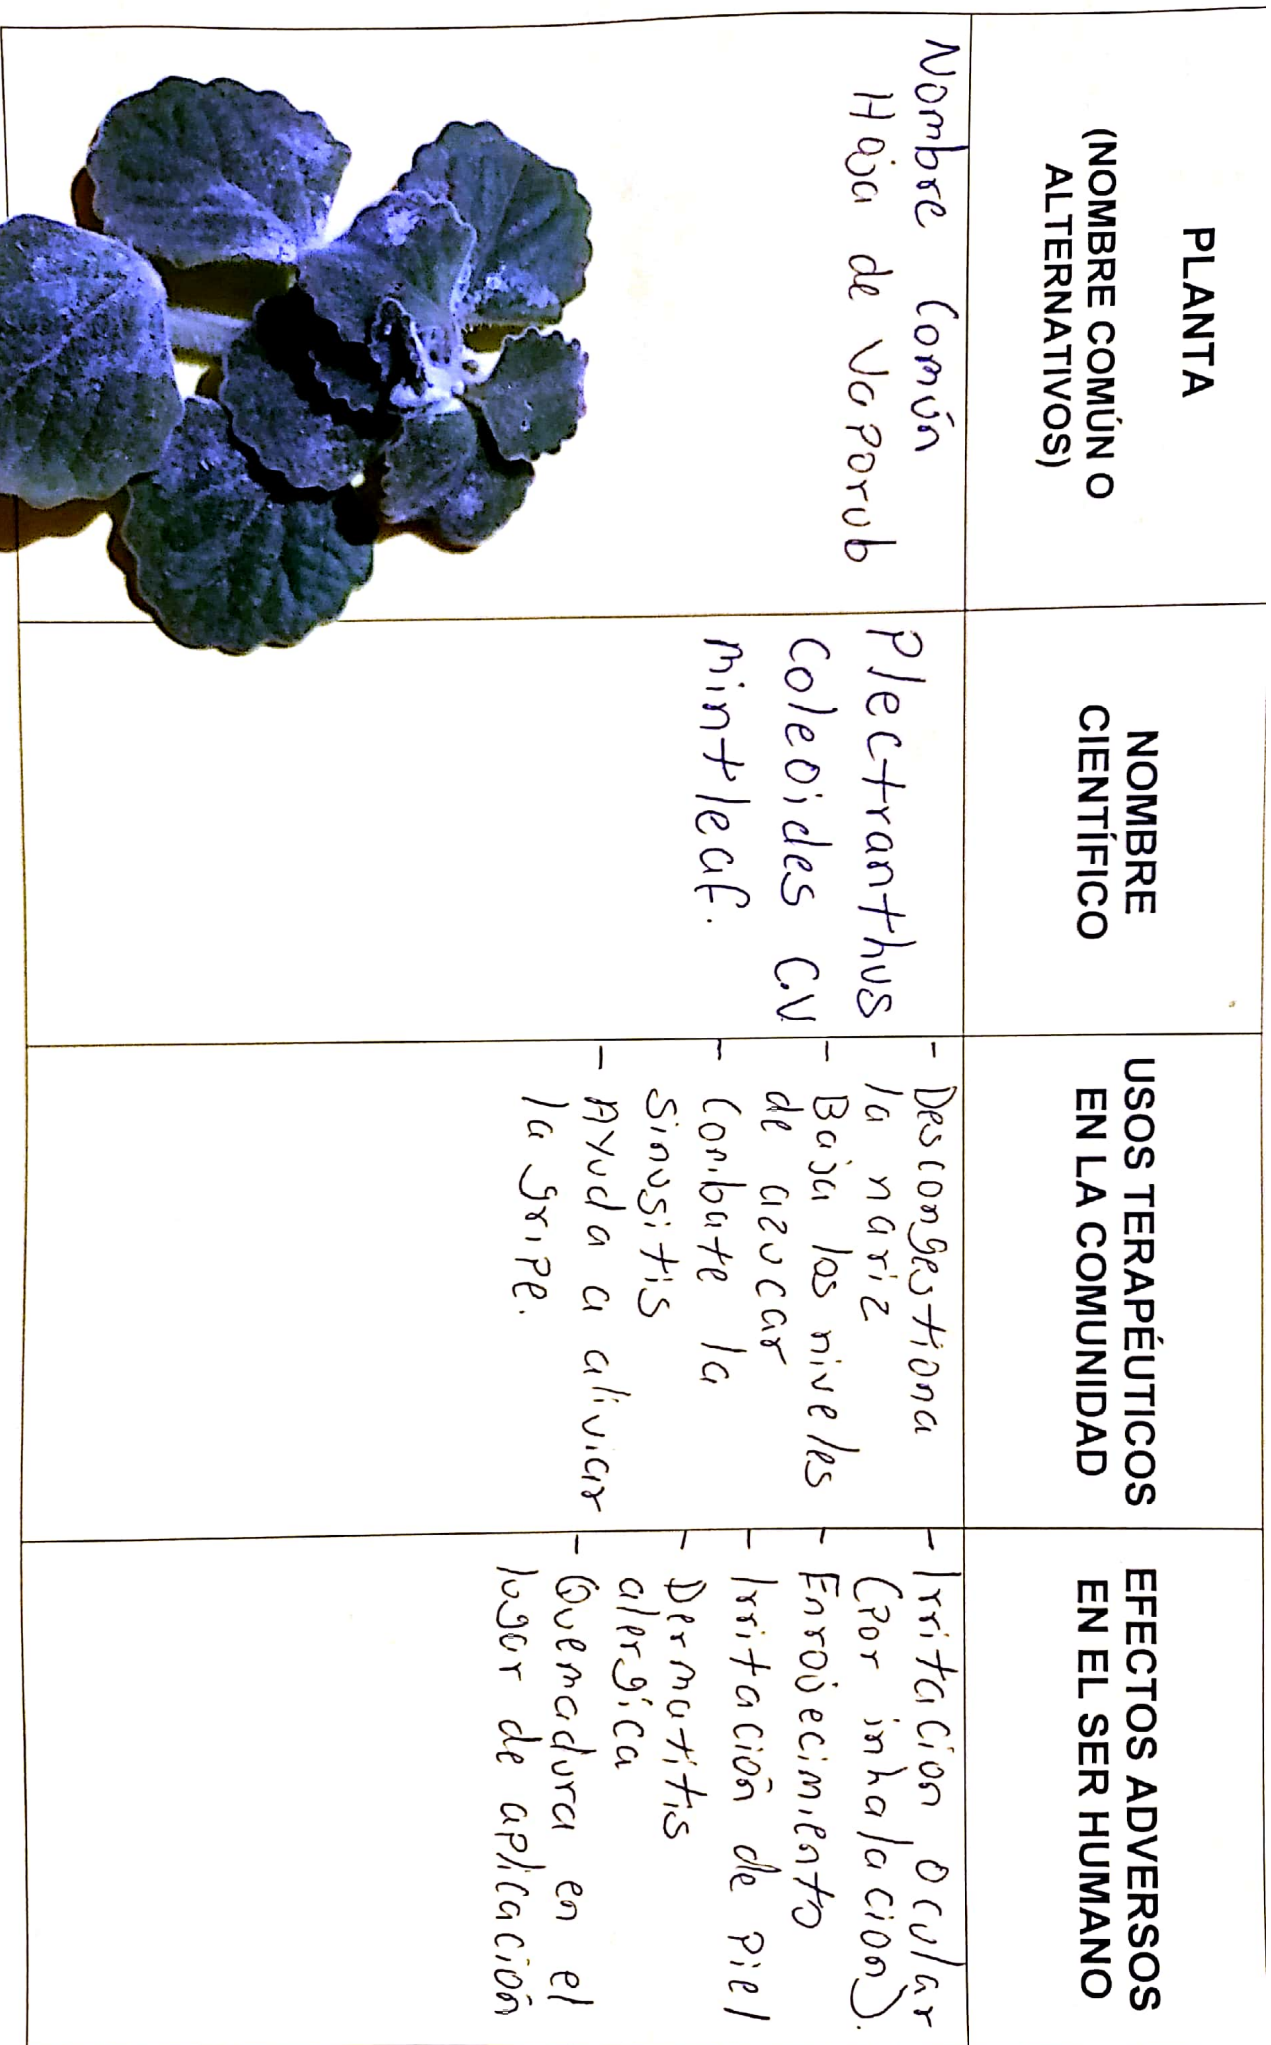 PLANTA
(NOMBRE COMÚN O
ALTERNATIVOS)
NOMBRE
CIENTÍFICO
USOS TERAPÉUTICOS
EN LA COMUNIDAD
EFECTOS ADVERSOS
EN EL SER HUMANO
Nombre Común
Hoja de Vaporub
Plectranthus
Coleoides C.V
mintleaf.
- Descongestiona
la nariz
- Baja los niveles
de azucar
- Combate la
Sinusitis
- Ayuda a aliviar
la gripe.
- Irritacion ocular
(Por inhalacion).
- Enrojecimiento
- Irritación de Piel
- Dermatitis
alergica
- Quemadura en el
lugar de aplicación